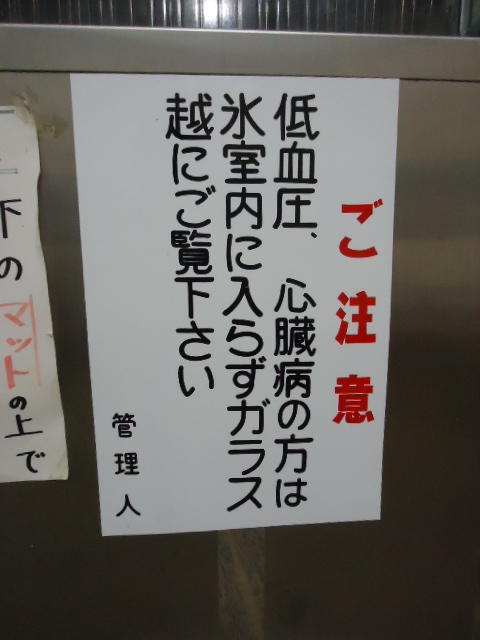 ご注意
低血圧、心臓病の方は
氷室内に入らずガラス
越にご覧下さい
管理人
下のマットの上で